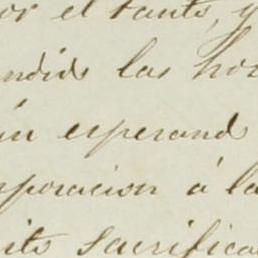 or el tanto, y
ndido las hos
ún esperand
sporacion á la
ito sacrifica